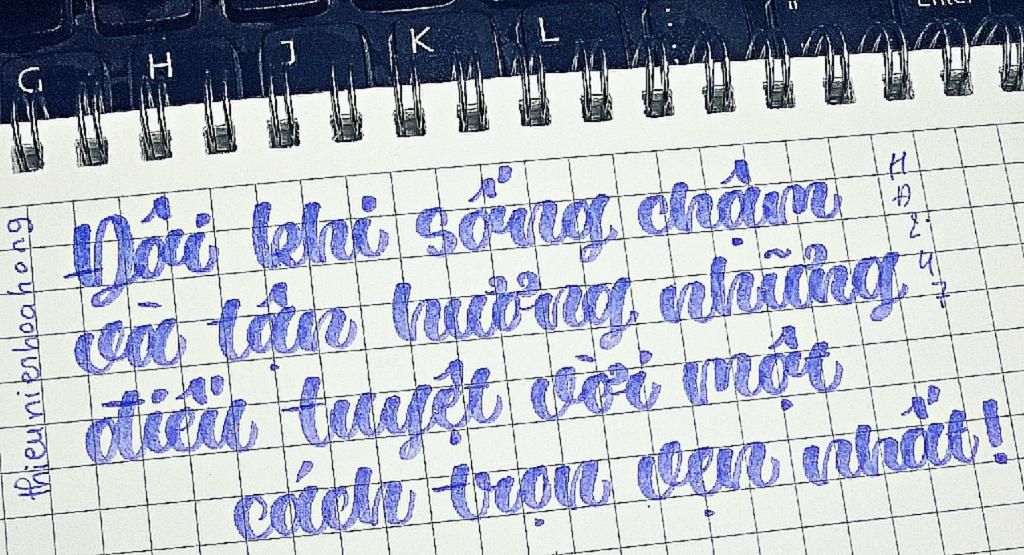 G H J K L : " Enter
Đôi khi sống chậm
và tận hưởng những
điều tuyệt vời một
cách trọn vẹn nhất!
thieunienhoahong
H
Đ
2
4
7